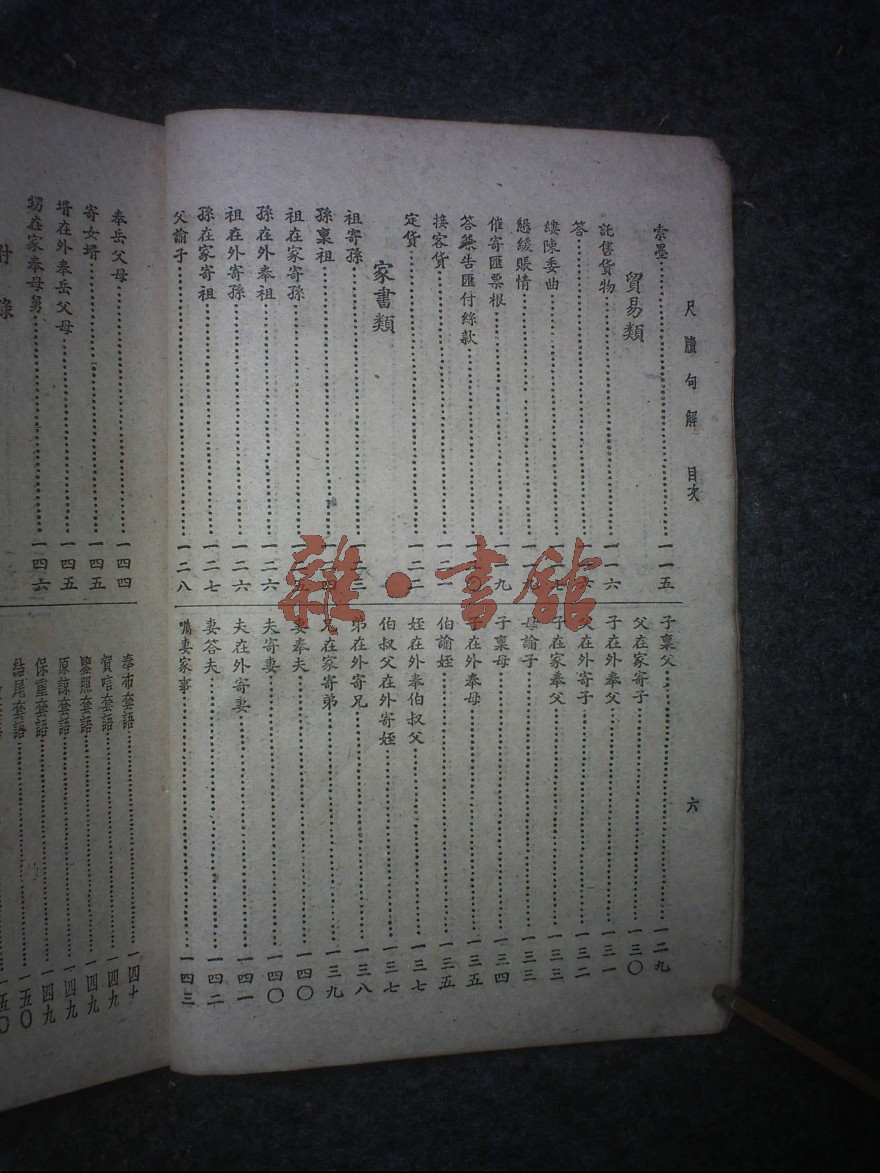 尺牘句解 目次 六
索墨 一一五
貿易類
託售貨物 一一六
答
縷陳委曲
懇緩賬情
催寄匯票根
答藥告匯付絲款
接客貨 一二一
定貨 一二二
家書類
祖寄孫
孫稟祖
祖在家寄孫
孫在外奉祖 一二六
祖在外寄孫 一二六
孫在家寄祖 一二七
父諭子 一二八
子稟父 一二九
父在家寄子 一三〇
子在外奉父 一三一
父在外寄子 一三二
子在家奉父 一三三
母諭子 一三三
子稟母 一三四
子在外奉母 一三五
伯諭姪 一三五
姪在外奉伯叔父 一三七
伯叔父在外寄姪 一三七
弟在外寄兄 一三八
兄在家寄弟 一三九
妻奉夫 一四〇
夫寄妻 一四〇
夫在外寄妻 一四一
妻答夫 一四二
囑妻家事 一四三
奉岳父母 一四四
寄女壻 一四五
壻在外奉岳父母 一四五
甥在家奉母舅 一四六
附錄
奉布套語
賀唁套語 一四九
鑒照套語 一四九
原諒套語 一四九
保重套語 一四九
結尾套語 一五〇
雜·書館